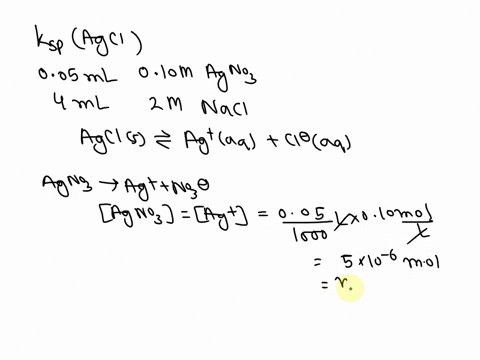 Ksp (AgCl)
0.05 mL 0.10M AgNO₃
4 mL 2M NaCl
AgCl(s) ⇌ Ag⁺(aq) + Cl⊖(aq)
AgNO₃ → Ag⁺ + NO₃⊖
[AgNO₃] = [Ag⁺] = 0.05/1000 L × 0.10 mol/L
= 5 × 10⁻⁶ mol
=